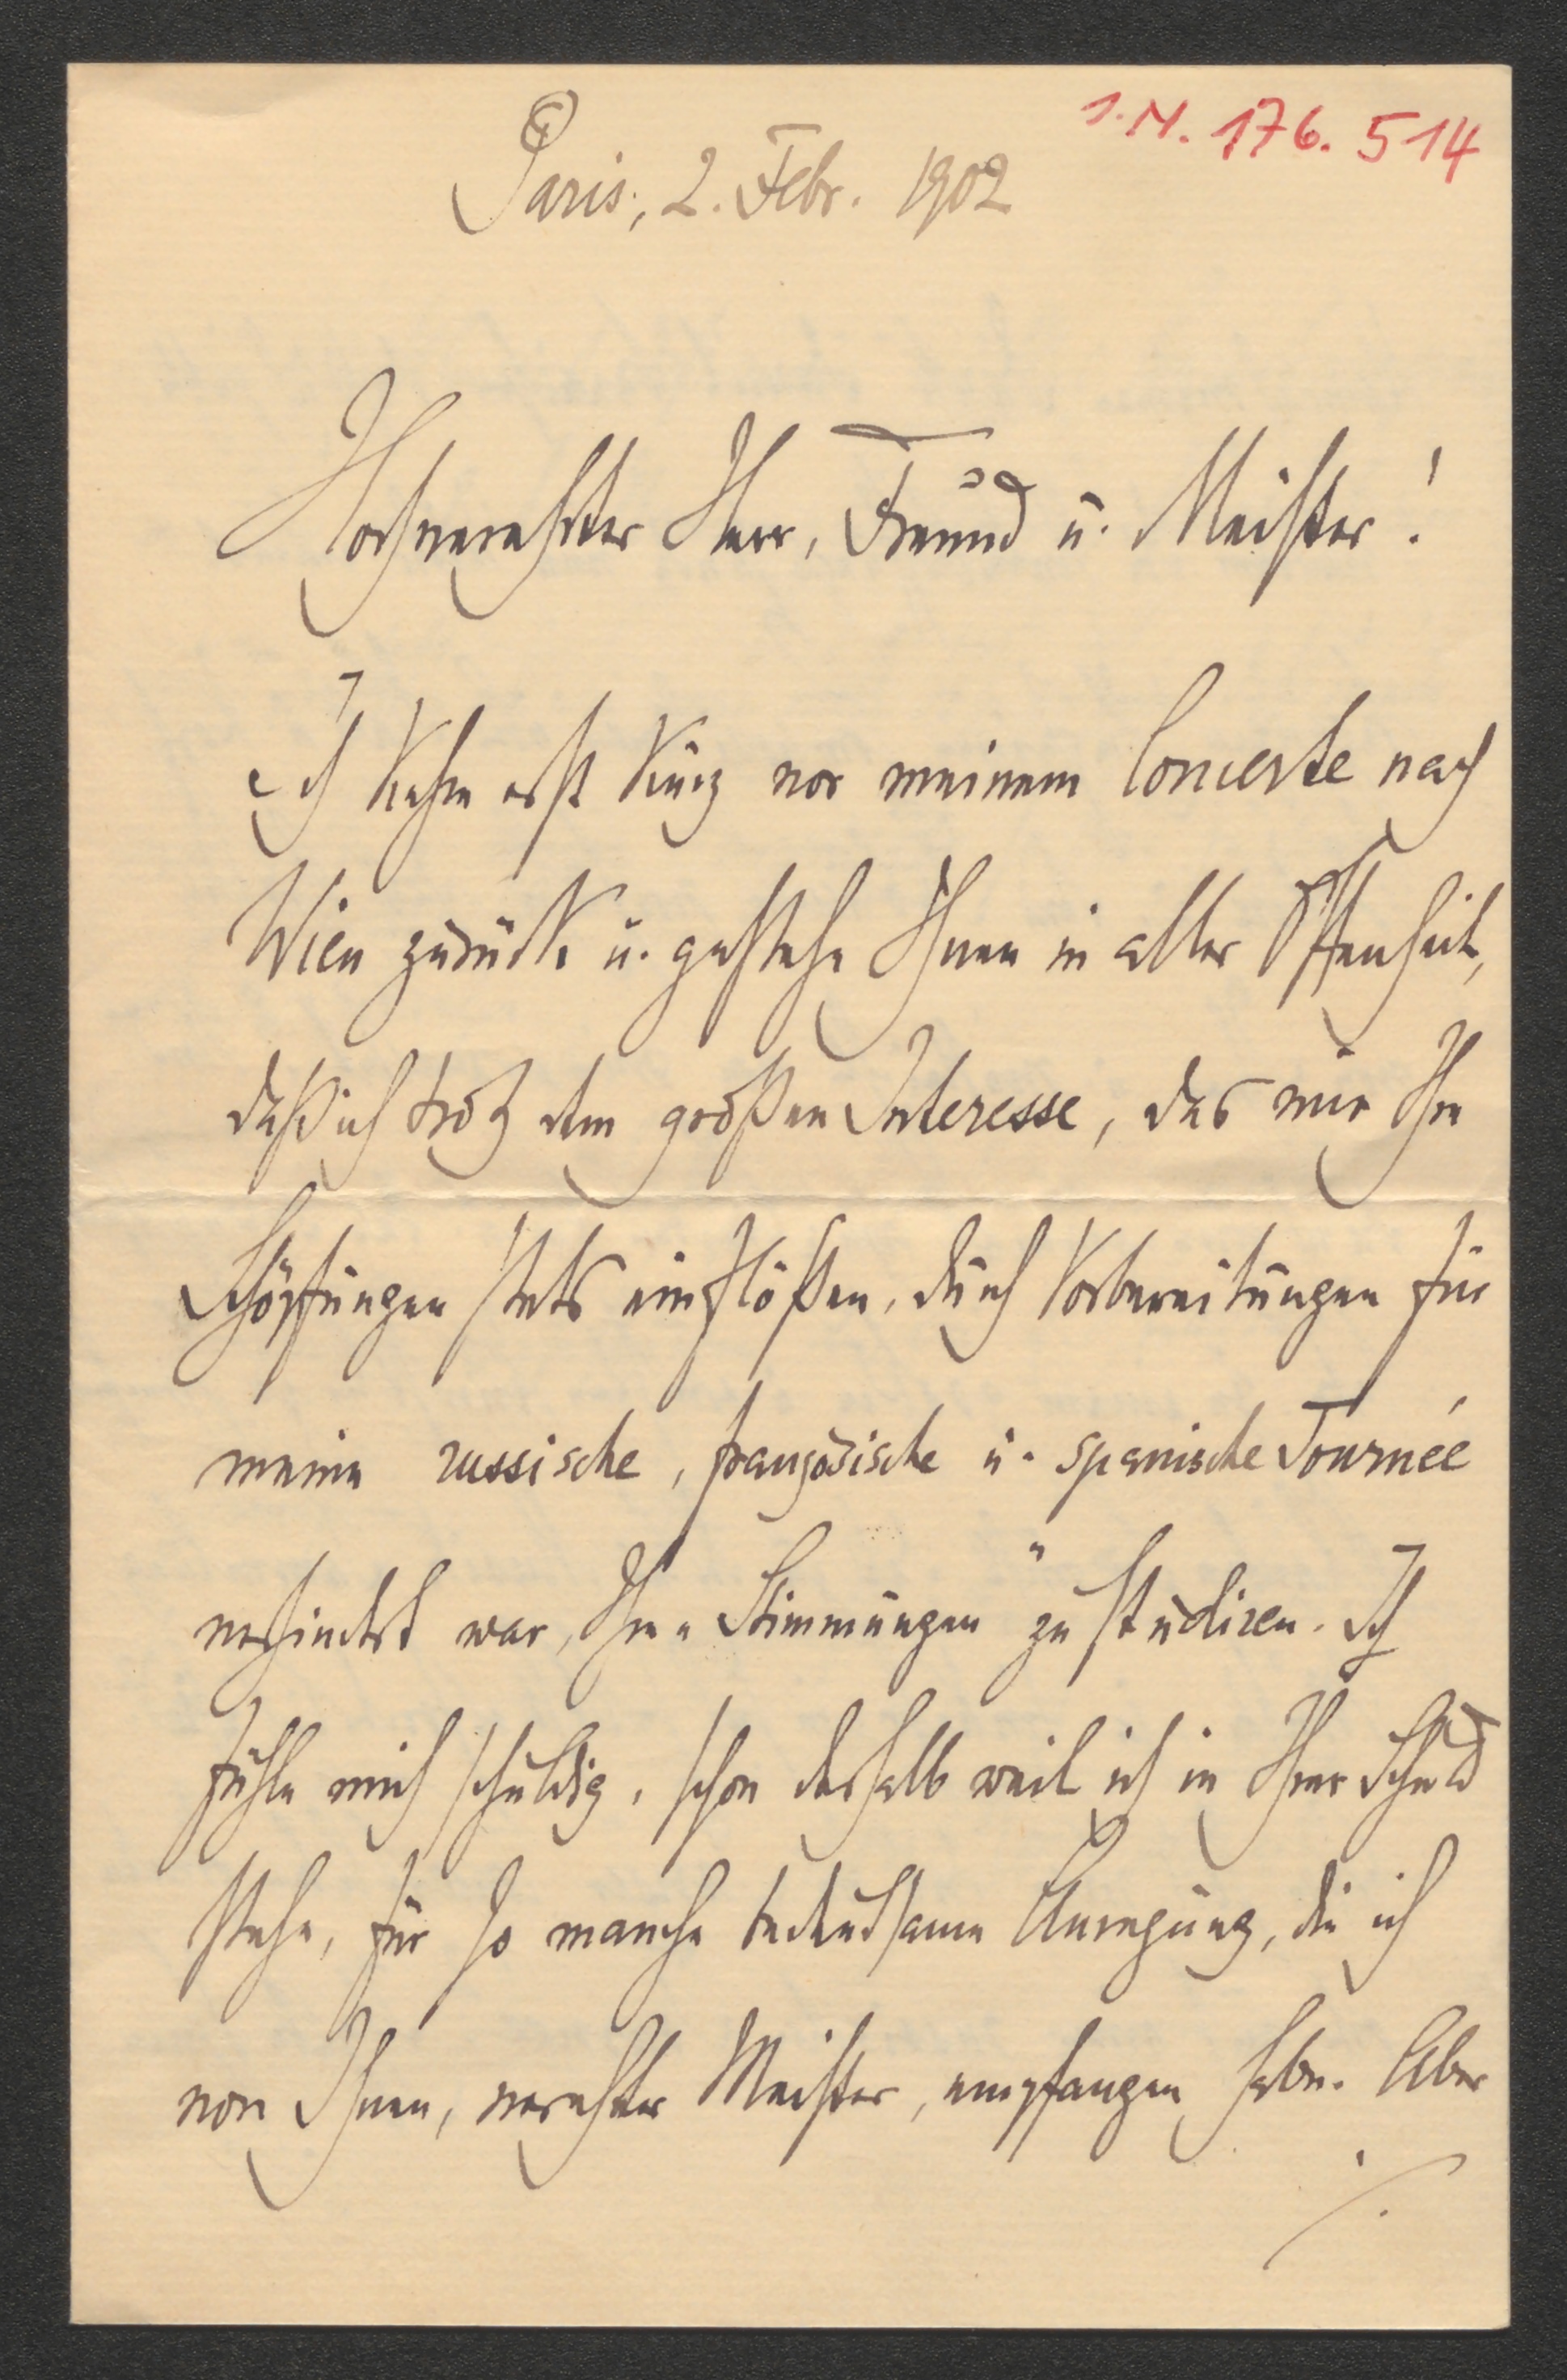 I.N. 176.514
Paris, 2. Febr. 1902
Hochverehrter Herr, Freund u. Meister!
Ich kehre erst kurz vor meinem Concerte nach
Wien zurück u. gestehe Ihnen in aller Offenheit,
daß ich trotz dem großen Interesse, das mir Ihre
Schöpfungen stets einflößen, durch Vorbereitungen für
meine russische, französische u. spanische Tournée
verhindert war, Ihre „Stimmungen" zu studiren. Ich
fühle mich schuldig, schon deshalb weil ich in Ihrer Schuld
stehe, für so manche bedeutsame Anregung, die ich
von Ihnen, verehrter Meister, empfangen habe. Aber
./.